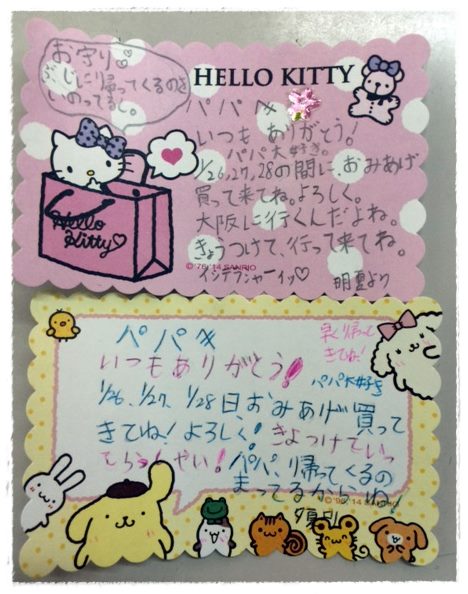 お守り♡
ぶじに帰ってくるのを
いのってるし。
HELLO KITTY
パパへ
いつもありがとう!
パパ大好き。
1/26,27,28の間に、おみあげ
買って来てね。よろしく。
大阪に行くんだよね。
きょうつけて、行って来てね。
Hello
Kitty♡
©'76,'14 SANRIO
イッテラッシャーイッ♡
より
パパへ
早く帰って
きてね!
いつもありがとう!
パパ大好き
1/26、1/27、1/28日おみあげ買って
きてね!よろしく!きょつけていっ
てらっしゃい!パパ、帰ってくるの
まってるからね!
'14 SANRIO
より